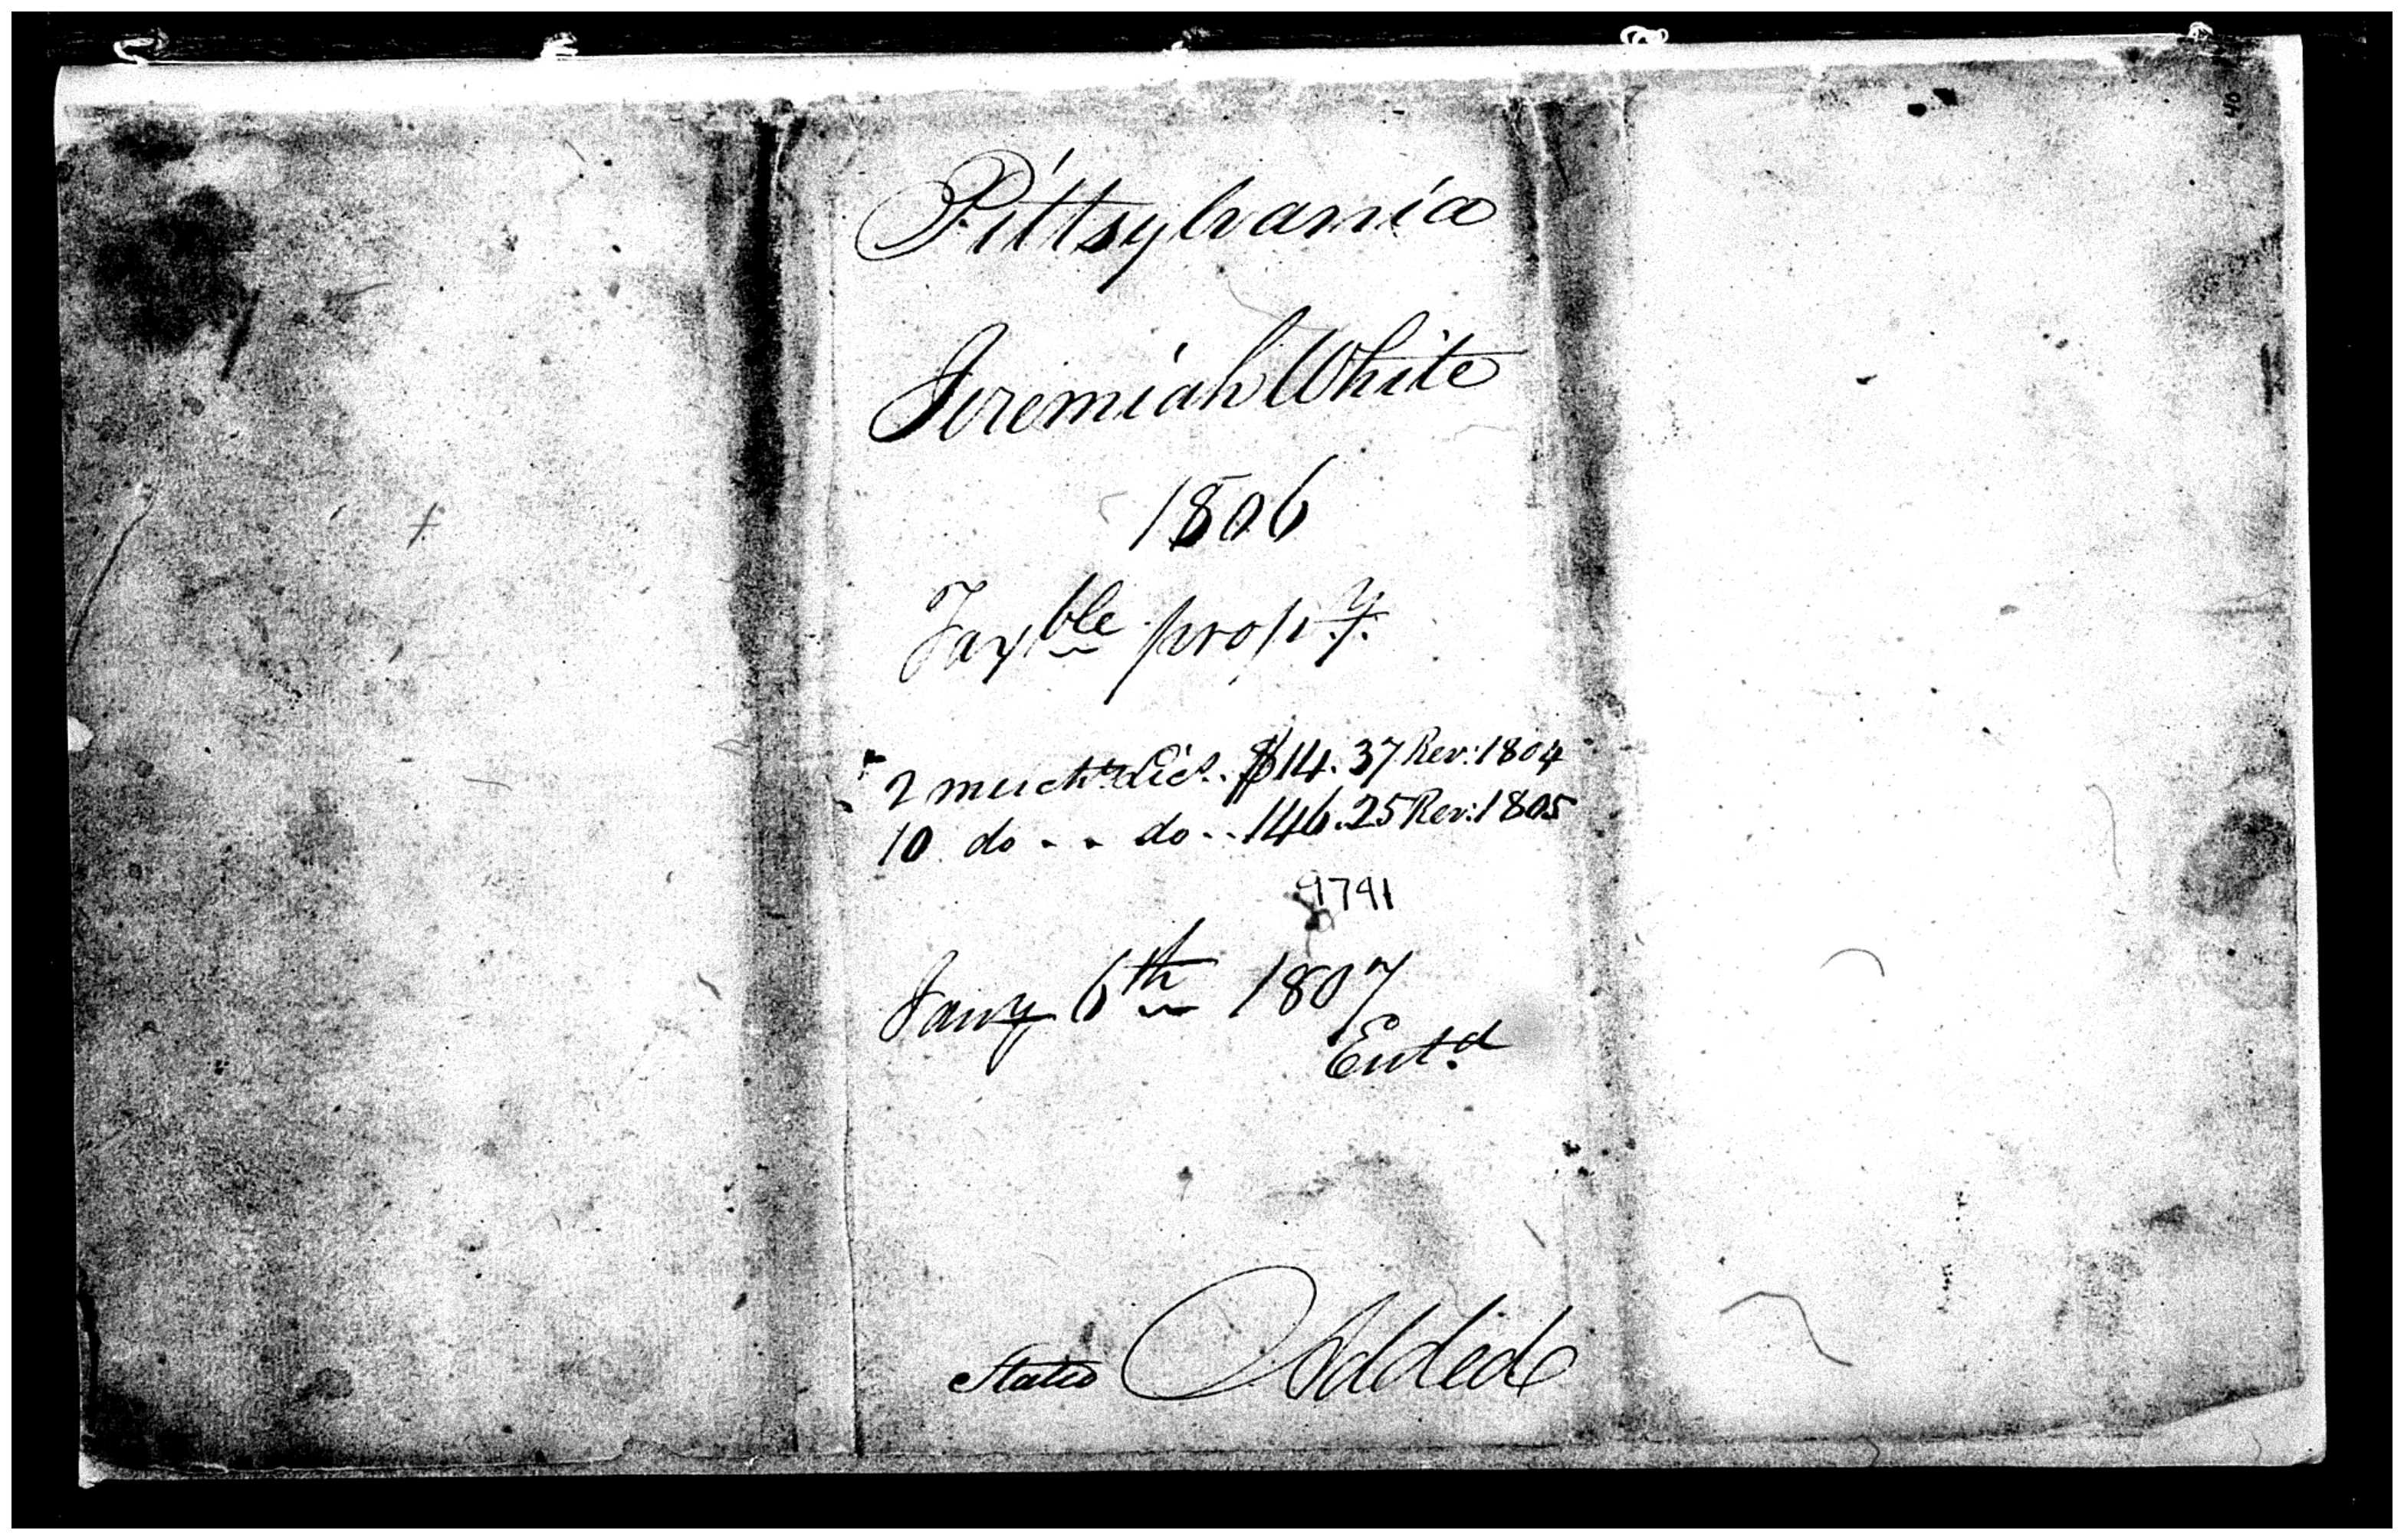 Pittsylvania
Jeremiah White
1806
Taxble propy.
2 mercht. Lics. $14.37 Rev: 1804
10 do . . do . . 146.25 Rev: 1805
9791
Jany 6th 1807
Entd.
Stated Added
40